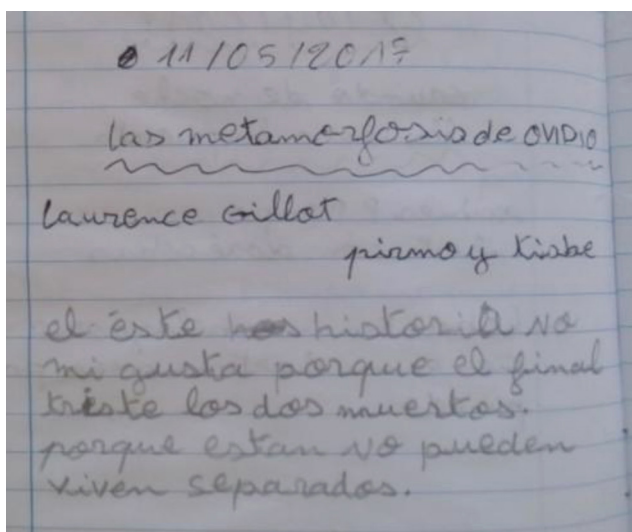 11/05/2017
las metamorfosis de OVIDIO
Laurence Gillot
pirmo y tisbe
el éste historia no
mi gusta porque el final
triste los dos muertos.
porque estan no pueden
viven separados.